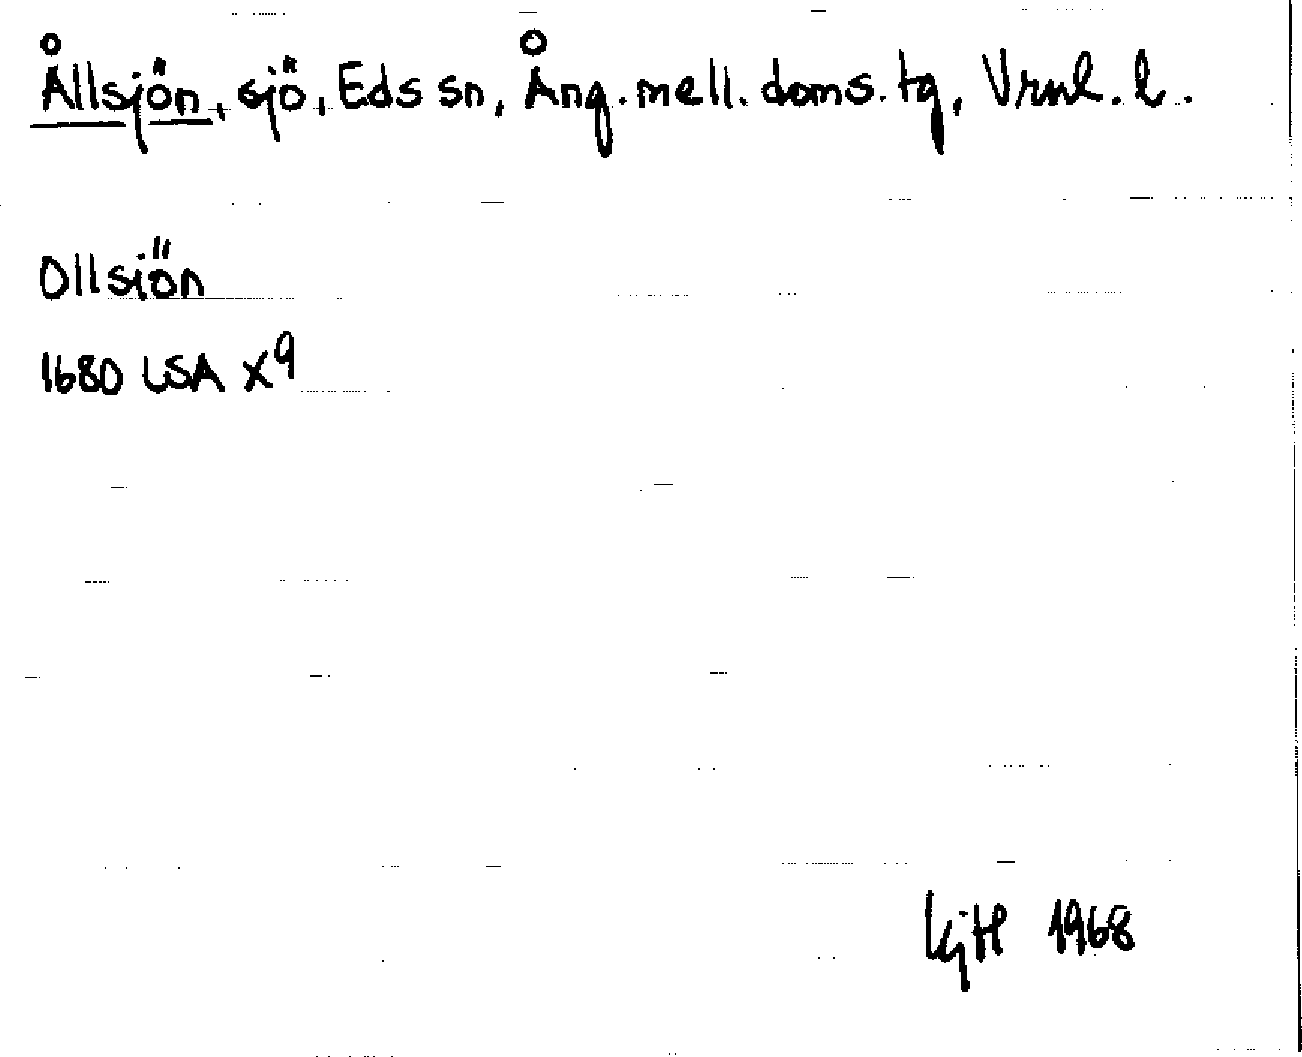 Ållsjön, sjö, Eds sn, Ång. mell. doms. tg, Vrnl. l.
Ollsiön
1680 LSA X9
KjH 1968